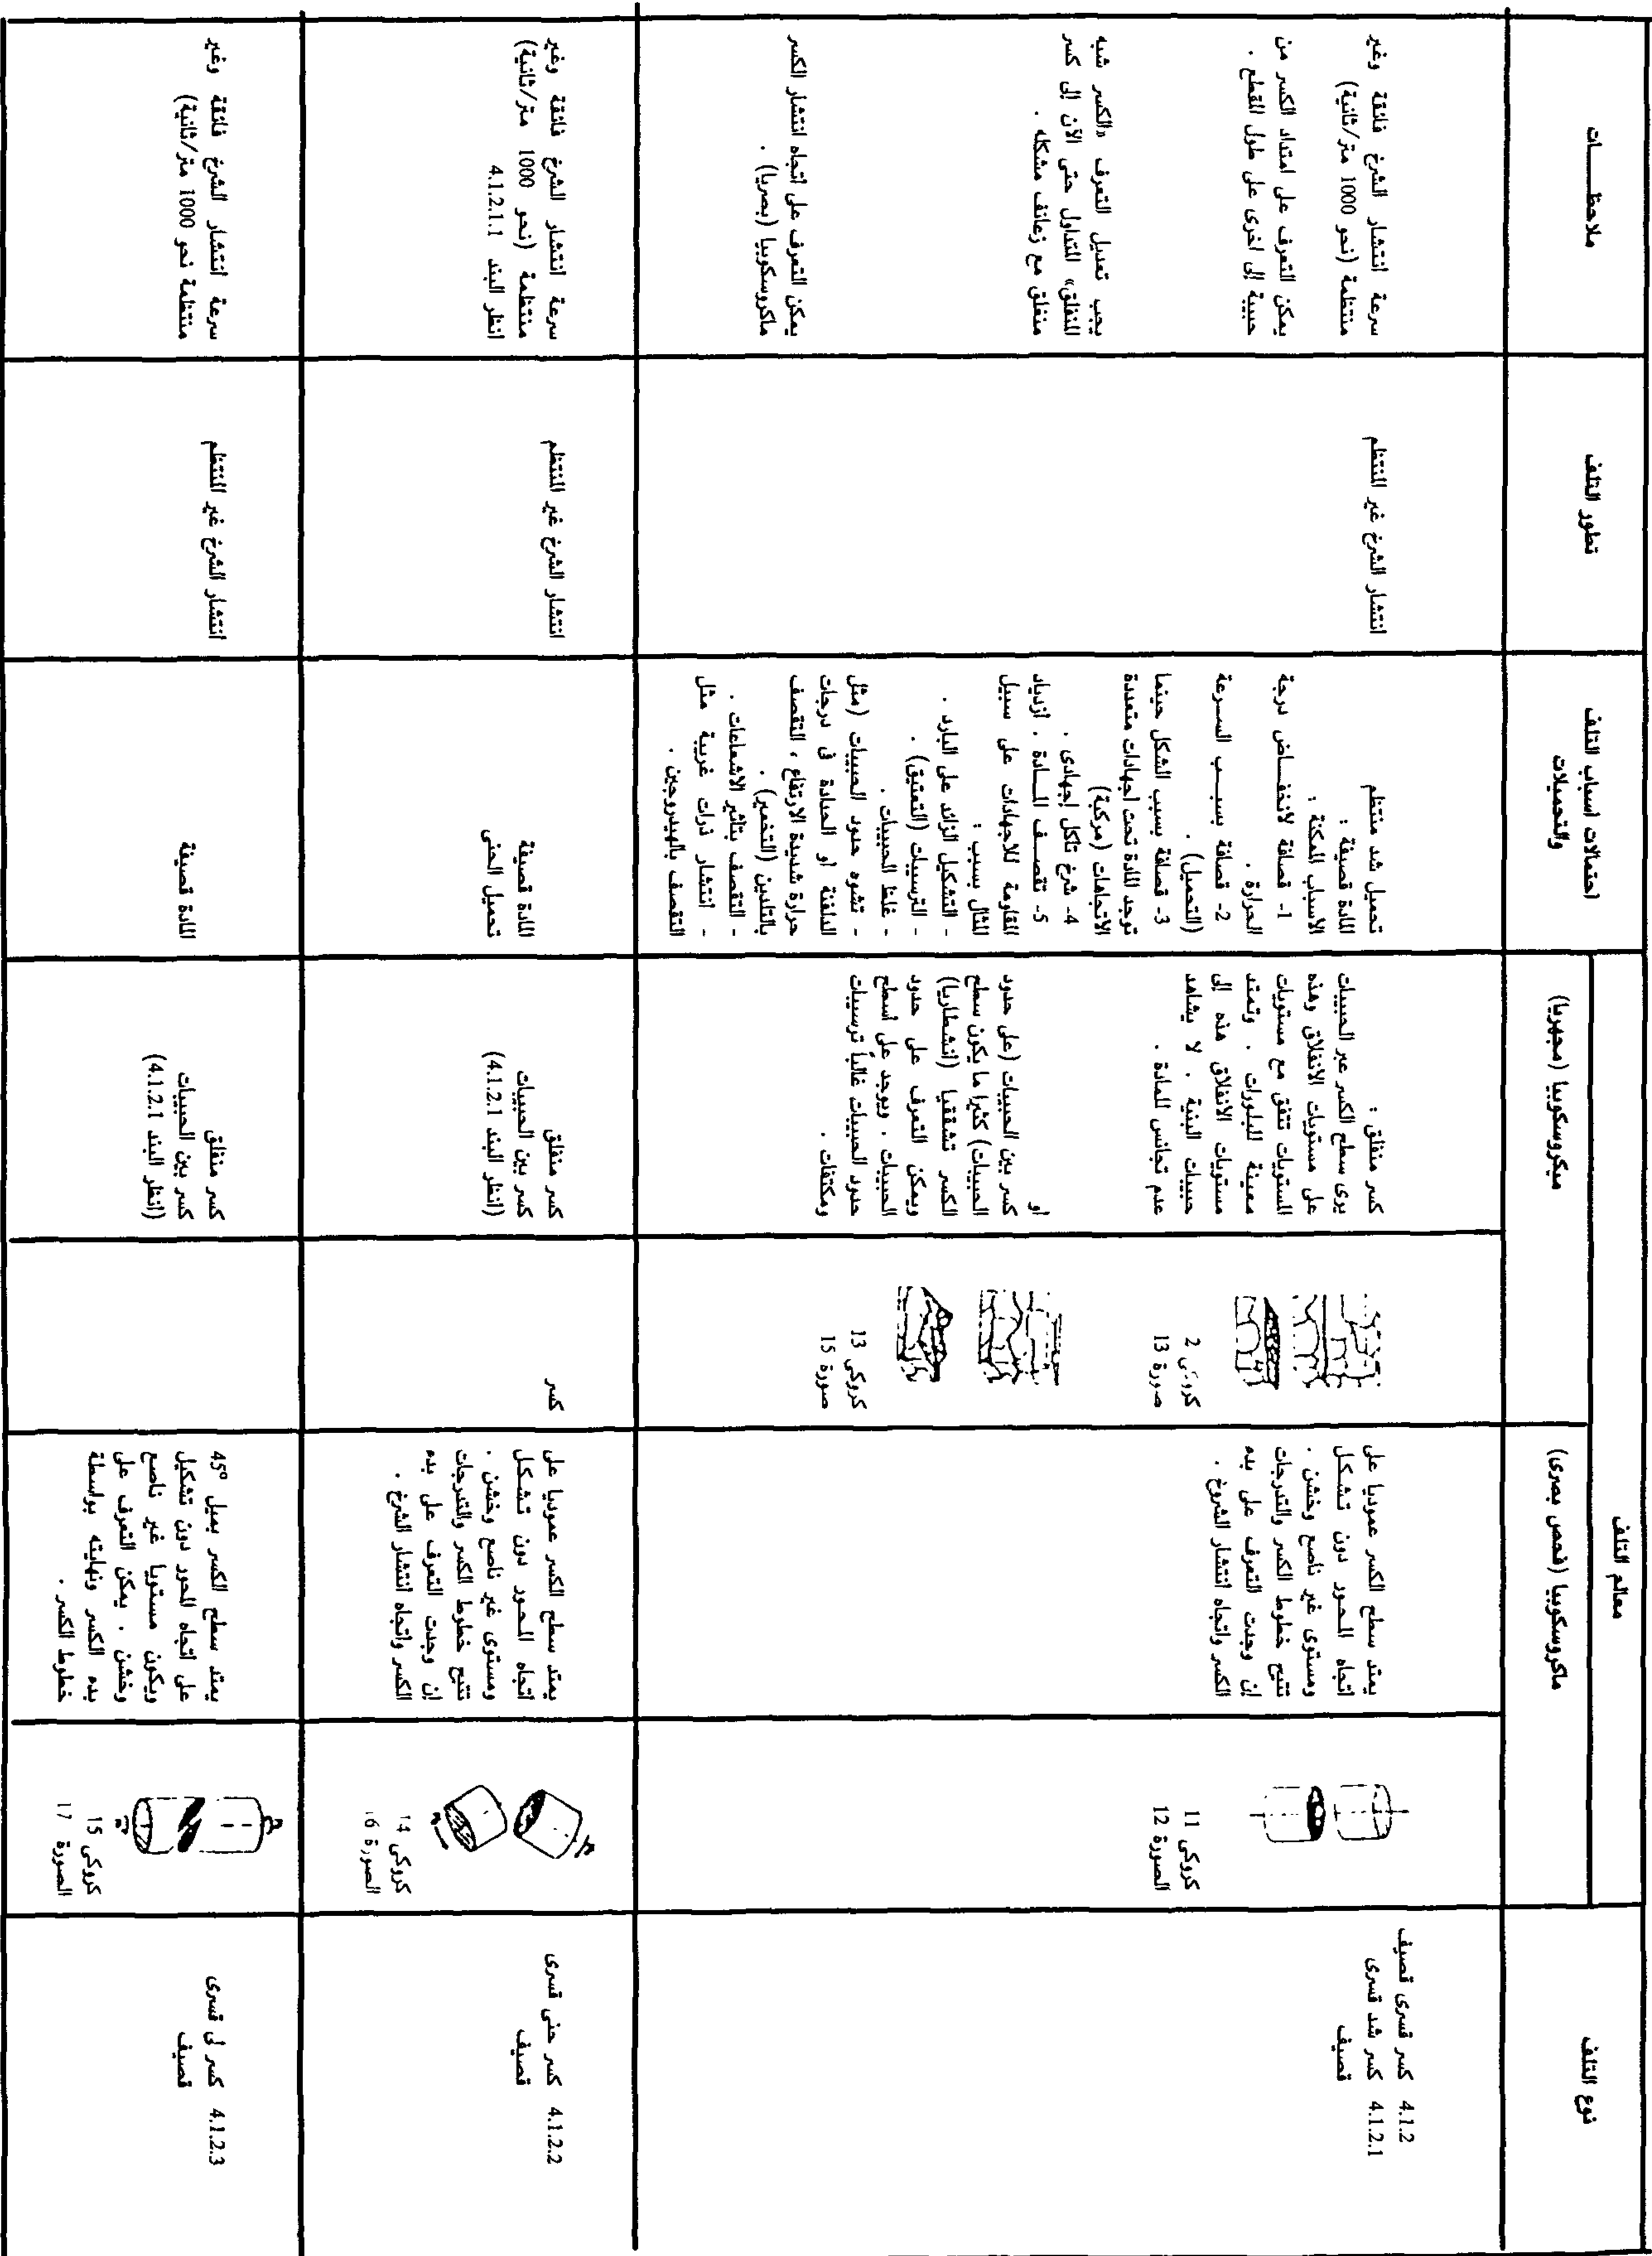 نوع التلف
معالم التلف
ماكروسكوبيا (فحص بصرى)
ميكروسكوبيا (مجهريا)
احتمالات اسباب التلف
والتحميلات
تطور التلف
ملاحظـــــات
4.1.2 كسر قسرى قصيف
4.1.2.1 كسر شد قسرى
قصيف
كروكى 11
الصورة 12
يمتد سطح الكسر عموديا على
اتجاه المحور دون تشكل
ومستوى غير ناصع وخشن .
تتيح خطوط الكسر والتدرجات
إن وجدت التعرف على بدء
الكسر واتجاه انتشار الشروخ .
كروكى 2
صورة 13
كروكى 13
صورة 15
كسر منفلق :
يرى سطح الكسر عبر الحبيبات
على مستويات الانفلاق وهذه
المستويات تتفق مع مستويات
معينة للبلورات . وتمتد
مستويات الانفلاق هذه إلى
حبيبات البنية . لا يشاهد
عدم تجانس للمادة .
او
كسر بين الحبيبات (على حدود
الحبيبات) كثيرا ما يكون سطح
الكسر تشققيا (انشطاريا)
ويمكن التعرف على حدود
الحبيبات . ويوجد على أسطح
حدود الحبيبات غالباً ترسيبات
ومكتفات .
تحميل شد منتظم
المادة قصيفة :
الاسباب الممكنة :
1- قصافة لانخفـــاض درجة
الحرارة .
2- قصافة بسبـــب السـرعة
(التحميل) .
3- قصافة بسبب الشكل حينما
توجد المادة تحت اجهادات متعددة
الاتجاهات (مركبة)
4- شرخ تآكل إجهادى .
5- تقصـف المــادة . ازدياد
المقاومة للاجهادات على سبيل
المثال بسبب :
- التشكيل الزائد على البارد .
- الترسيبات (التعتيق) .
- غلظ الحبيبات .
- تشوه حدود الحبيبات (مثل
الدلفنة او الحدادة فى درجات
حرارة شديدة الارتفاع ، التقصف
بالتلدين (التخمير) .
- التقصف بتأثير الاشعاعات .
- انتشار ذرات غريبة مثل
التقصف بالهيدروجين .
انتشار الشرخ غير المنتظم
سرعة انتشار الشرخ فائقة وغير
منتظمة (نحو 1000 متر/ثانية)
يمكن التعرف على امتداد الكسر من
حبيبة إلى اخرى على طول المقطع .
يجب تعديل التعرف «الكسر شبه
المنفلق» المتداول حتى الآن إلى كسر
منفلق مع زعانف مشكله .
يمكن التعرف على اتجاه انتشار الكسر
ماكروسكوبيا (بصريا) .
4.1.2.2 كسر حنى قسرى
قصيف
كروكى 14
الصورة 16
يمتد سطح الكسر عموديا على
اتجاه المحور دون تشكل
ومستوى غير ناصع وخشن .
تتيح خطوط الكسر والتدرجات
إن وجدت التعرف على بدء
الكسر واتجاه انتشار الشرخ .
كسر
كسر منفلق
كسر بين الحبيبات
(انظر البند 4.1.2.1)
المادة قصيفة
تحميل الحنى
انتشار الشرخ غير المنتظم
سرعة انتشار الشرخ فائقة وغير
منتظمة (نحو 1000 متر/ثانية)
انظر البند 4.1.2.1.1
4.1.2.3 كسر لى قسرى
قصيف
كروكى 15
الصورة 17
يمتد سطح الكسر بميل 45°
على اتجاه المحور دون تشكيل
ويكون مستويا غير ناصع
وخشن . يمكن التعرف على
بدء الكسر ونهايته بواسطة
خطوط الكسر .
كسر منفلق
كسر بين الحبيبات
(انظر البند 4.1.2.1)
المادة قصيفة
انتشار الشرخ غير المنتظم
سرعة انتشار الشرخ فائقة وغير
منتظمة نحو 1000 متر/ثانية)